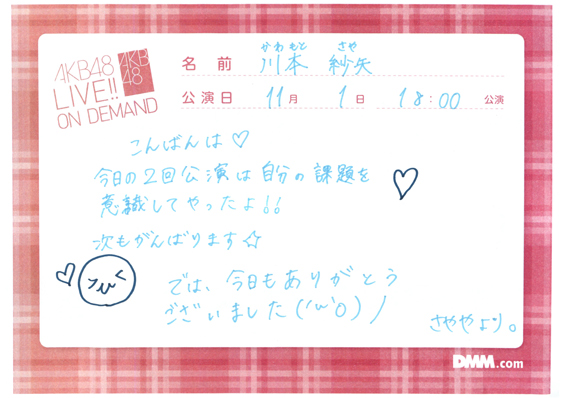 AKB48
LIVE!!
ON DEMAND
AKB
48
かわもと さや
名前 川本 紗矢
公演日 11月 1日 18:00 公演
こんばんは♡
今日の2回公演は自分の課題を
意識してやったよ!!
次もがんばります☆
では、今日もありがとう
ございました('ω'O)ノ
さややより。
DMM.com